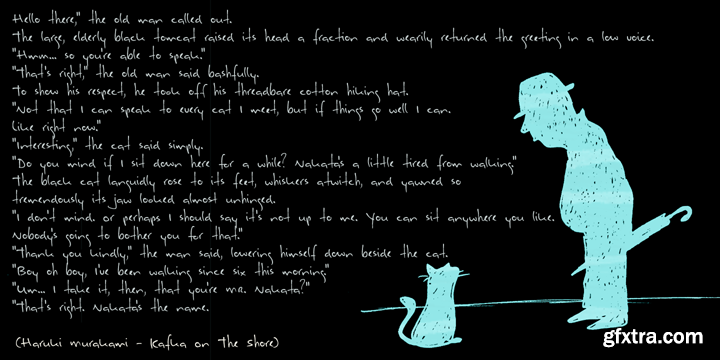 Hello there," the old man called out.
The large, elderly black tomcat raised its head a fraction and wearily returned the greeting in a low voice.
"Hmm... so you're able to speak."
"That's right," the old man said bashfully.
To show his respect, he took off his threadbare cotton hiking hat.
"Not that I can speak to every cat I meet, but if things go well I can.
Like right now."
"Interesting," the cat said simply.
"Do you mind if I sit down here for a while? Nakata's a little tired from walking."
The black cat languidly rose to its feet, whiskers atwitch, and yawned so
tremendously its jaw looked almost unhinged.
"I don't mind. or perhaps I should say it's not up to me. You can sit anywhere you like.
Nobody's going to bother you for that."
"Thank you kindly," the man said, lowering himself down beside the cat.
"Boy oh boy, I've been walking since six this morning."
"Um... I take it, then, that you're mr. Nakata?"
"That's right. Nakata's the name.
(Haruki murakami - Kafka on The shore)
gfxtra.com